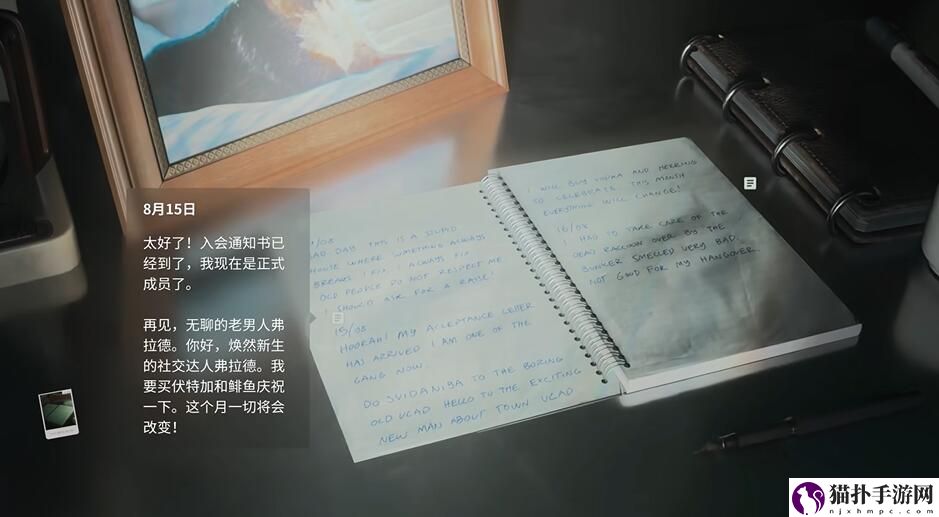 8月15日
太好了！入会通知书已
经到了，我现在是正式
成员了。
再见，无聊的老男人弗
拉德。你好，焕然新生
的社交达人弗拉德。我
要买伏特加和鲱鱼庆祝
一下。这个月一切将会
改变！
/08
BAD DAY THIS IS A STUPID
HOUSE WHERE SOMETHING ALWAYS
BREAKS I FIX, I ALWAYS FIX
OLD PEOPLE DO NOT RESPECT ME
I SHOULD ASK FOR A RAISE!
15/08
HOORAH! MY ACCEPTANCE LETTER
HAS ARRIVED I AM ONE OF THE
GANG NOW.
DO SVIDANIYA TO THE BORING
OLD VLAD HELLO TO THE EXCITING
NEW MAN ABOUT TOWN VLAD
I WILL BUY VODKA AND HERRING
TO CELEBRATE. THIS MONTH
EVERYTHING WILL CHANGE!
16/08
I HAD TO TAKE CARE OF THE
DEAD RACCOON OVER BY THE
BUNKER SMELLED VERY BAD.
NOT GOOD FOR MY HANGOVER.
猫扑手游网
njxhmpc.com